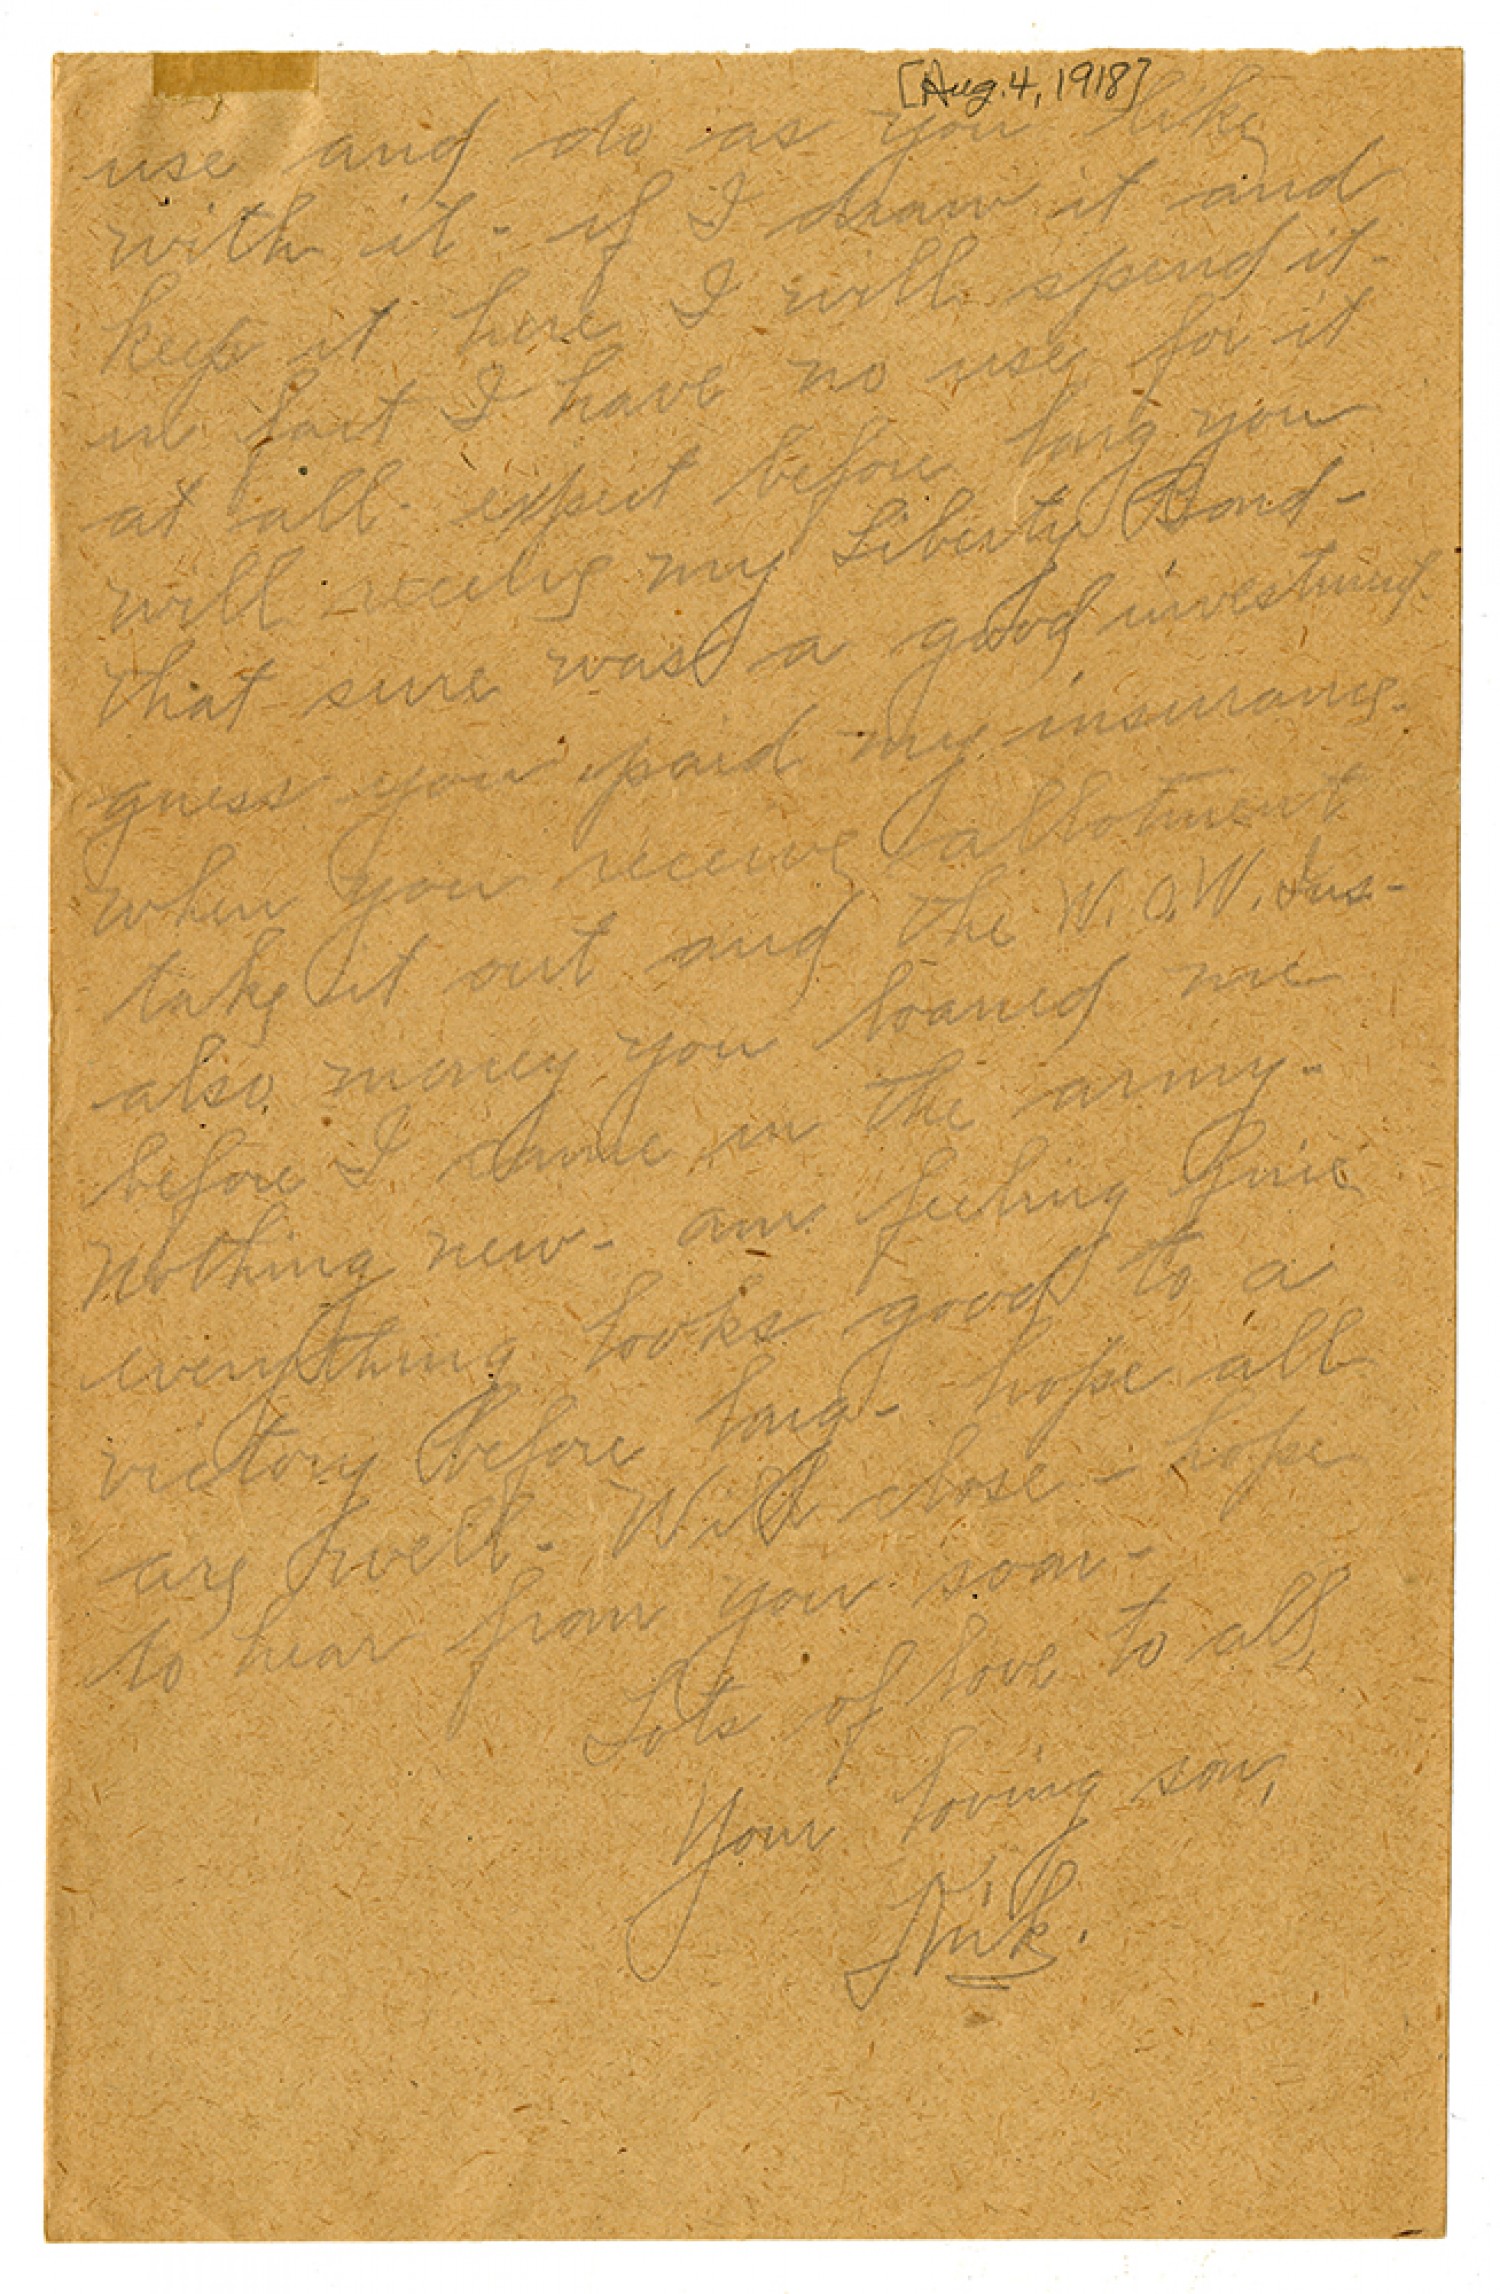 [Aug. 4, 1918]
use and do as you like
with it - if I draw it and
keep it here I will spend it -
in fact I have no use for it
at all - expect before long you
will receive my Liberty Bond -
that sure was a good investment
guess you paid my insurance -
when you receive allotment
take it out and the W. O. W. Ins -
also money you loaned me
before I came in the army -
Nothing new - am feeling fine
everything looks good to a
victory before long - hope all
are well - Will close - hope
to hear from you soon -
Lots of love to all,
Your loving son,
Nick.